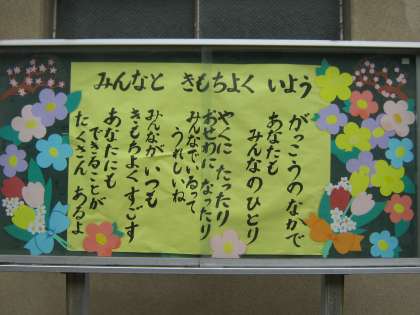 みんなと きもちよく いよう
がっこうのなかで
あなたも
みんなのひとり
やくに たったり
おせわに なったり
みんなでいるって
うれしいね
みんながいつも
きもちよくすごす
あなたにも
できることが
たくさん あるよ